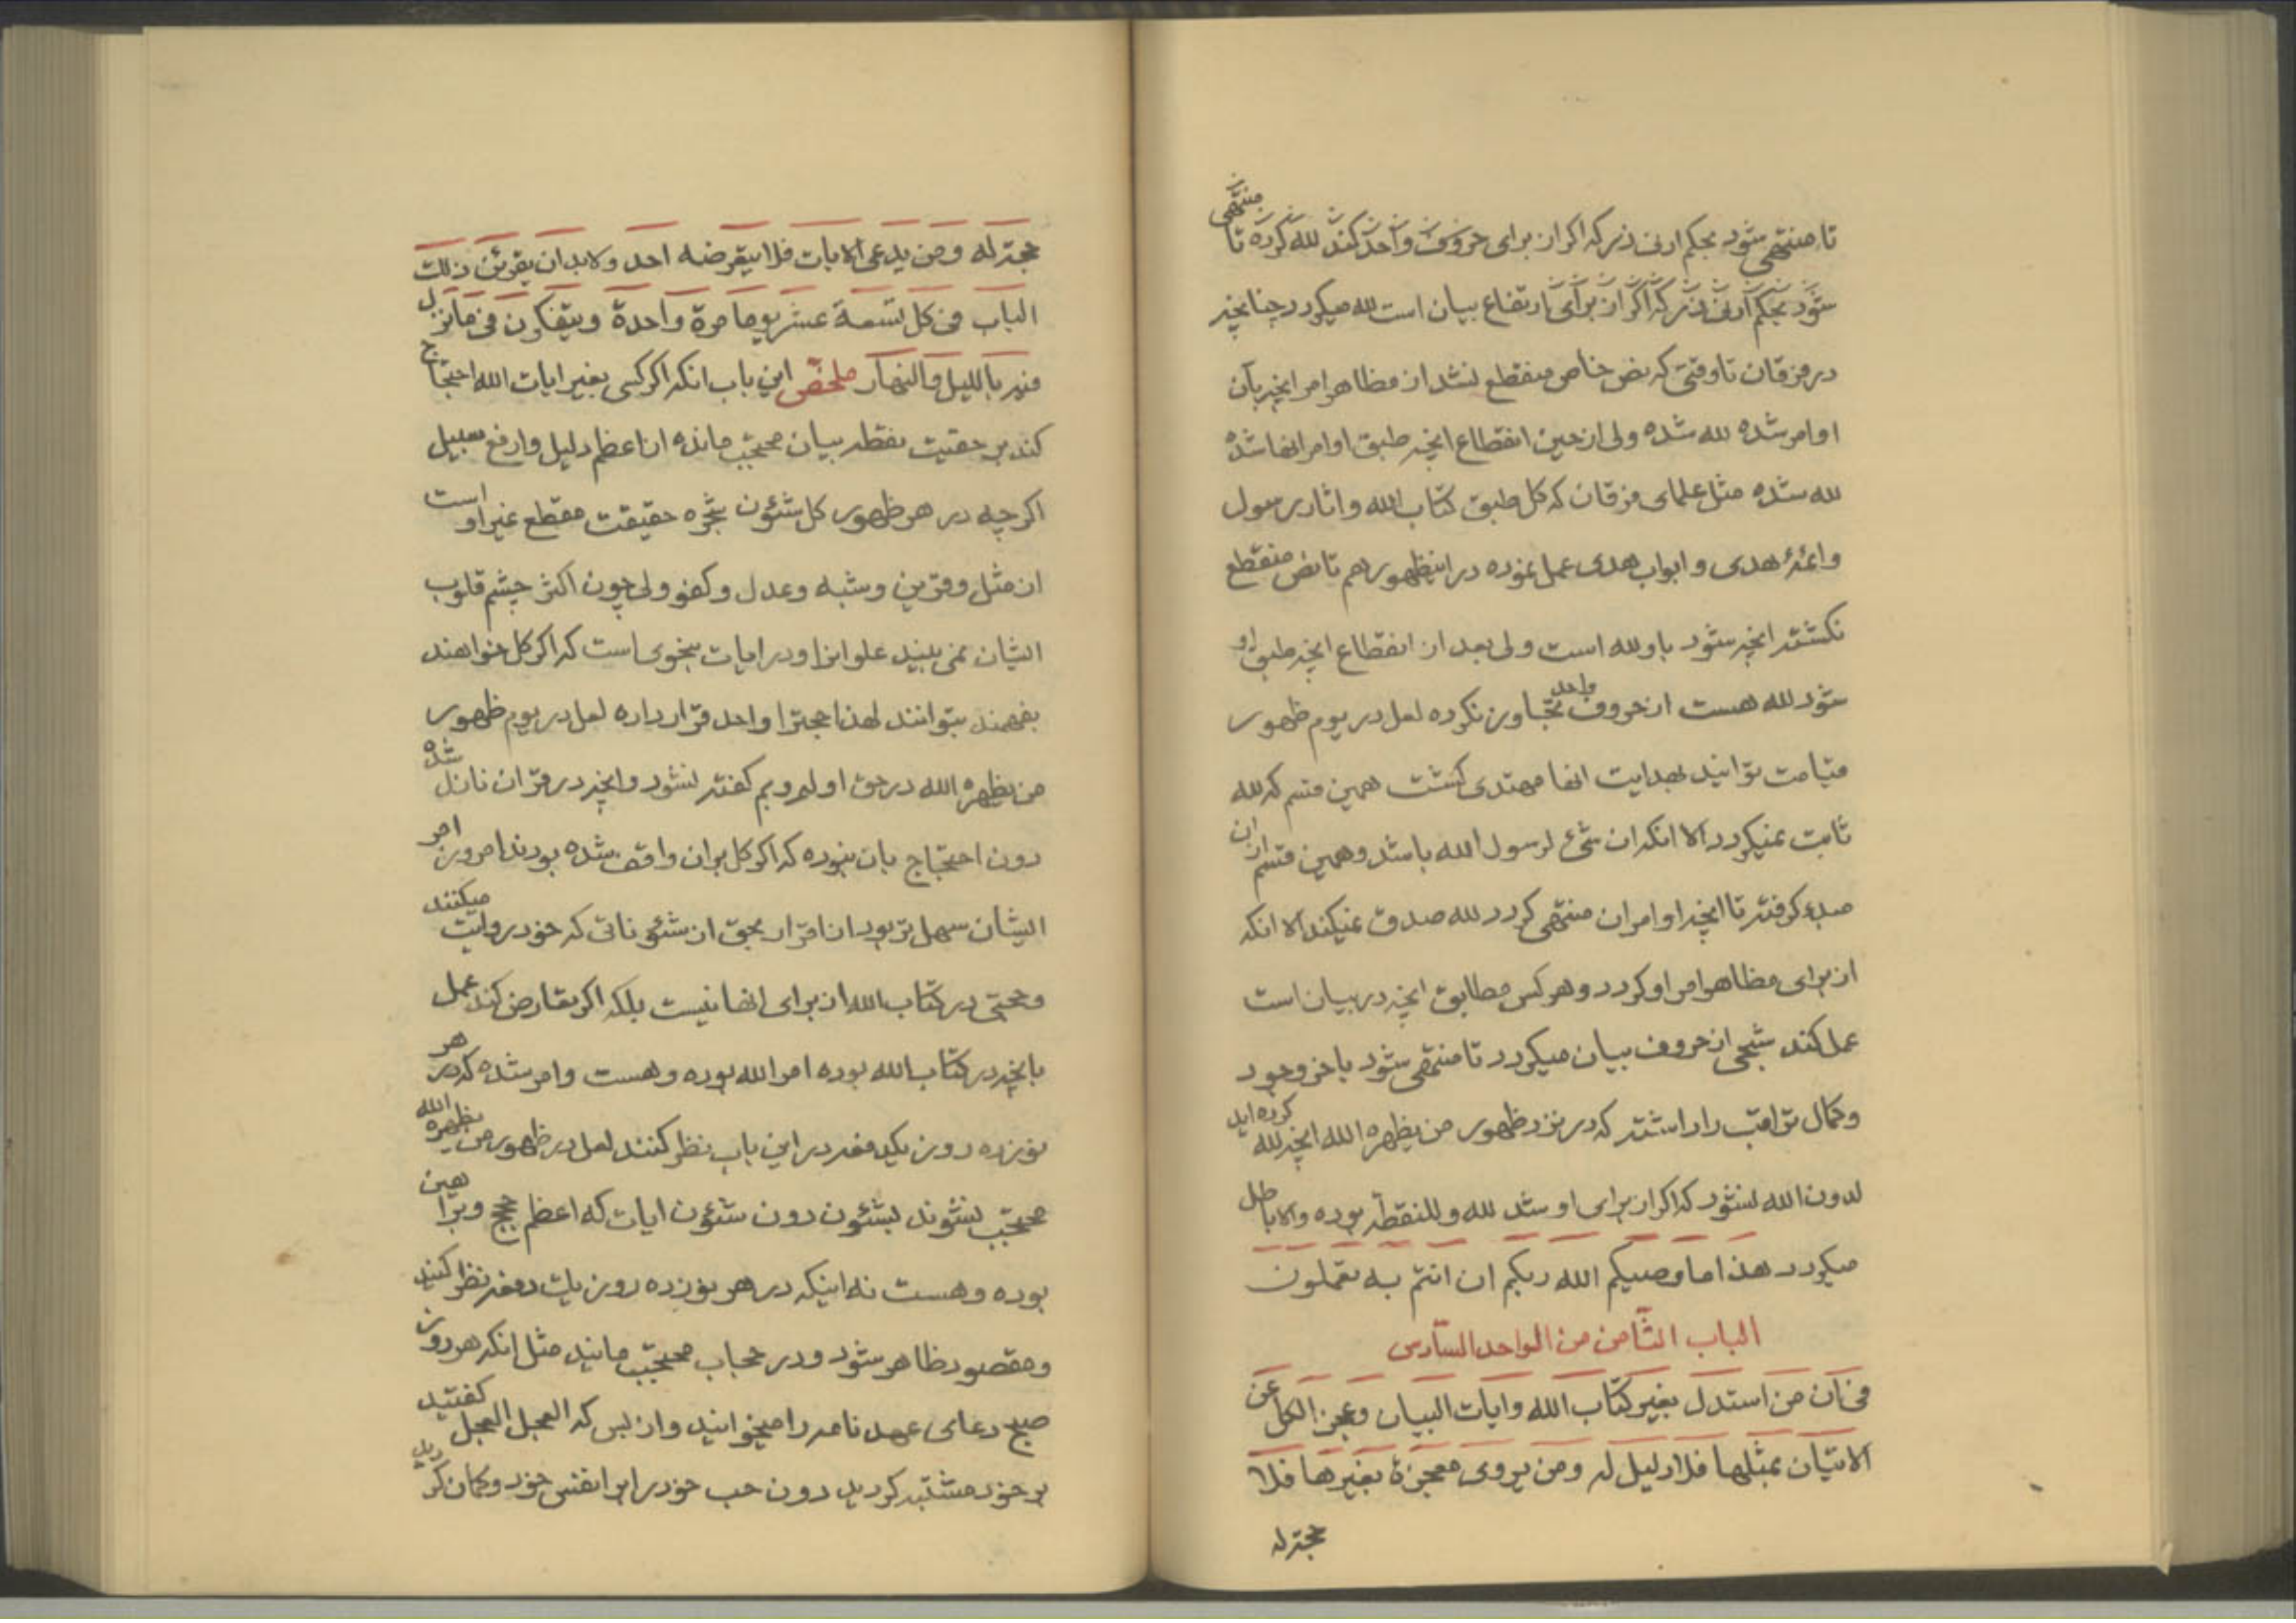 تا منتهی شود بحکم ادنی ذر که اکر از برای حروف واحد کند لله کرده تا منتهی
شود بحکم ادنی ذر که اکر از برای ارتفاع بیان است لله میکردد چنانچه
در فرقان تا وقتی که نص خاص منقطع نشد از مظاهر امر انچه بآن
اوامر شده لله شده ولی از حین انقطاع انچه طبق اوامر انها شده
لله شده مثل علمای فرقان که کل طبق کتاب الله و اثار رسول
و ائمهٔ هدی و ابواب هدی عمل نموده در اینظهور هم تا نص منقطع
نکشته انچه شود باو لله است ولی بعد از انقطاع انچه طبق او
شود لله هست از حروف واحد تجاوز نکرده لعل در یوم ظهور
قیامت توانید بهدایت انها مهتدی کشت همین قسم که لله
ثابت نمیکردد الا انکه ان شیئ لرسول الله باشد و همین قسم از ان
مبدء کرفته تا انچه اوامر ان منتهی کردد لله صدق نمیکند الا انکه
از برای مظاهر امر او کردد و هر کس مطابق انچه در بیان است
عمل کند شبحی از حروف بیان میکردد تا منتهی شود باخر وجود
و کمال تراقب را داشته که در نزد ظهور من یظهره الله انچه لله کرده اید
لدون الله نشود که اکر از برای او شد لله و للنقطه بوده و الا باطل
میکردد هذا ما وصیکم الله ربکم ان انتم به تعملون
الباب الثامن من الواحد السادس
فی ان من استدل بغیر کتاب الله و ایات البیان و عجز الکل عن
الاتیان بمثلها فلا دلیل له و من یروی معجزة بغیرها فلا
حجة له
حجة له و من یدعی الایات فلا یتعرضنه احد و لابد ان یقرئن ذلک
الباب فی کل تسعة عشر یوما مرة واحدة و یتفکرون فی ما نزل
فیه باللیل و النهار ملخص این باب انکه اکر کسی بغیر ایات الله احتجاج
کند بر حقیت نقطه بیان محتجب مانده از اعظم دلیل و ارفع سبیل
اکر چه در هر ظهور کل شئون شجره حقیقت مقطع غیر او است
از مثل و قرین و شبه و عدل و کفو ولی چون اکثر چشم قلوب
ایشان نمی بیند علو انرا و در ایات بنحوی است که اکر کل خواهند
بفهمند بتوانند لهذا حجترا واحد قرار داده لعل در یوم ظهور
من یظهره الله در حق او لم و بم کفته نشود و انچه در قران نازل شده
دون احتجاج بان نبوده که اکر کل بران واقف شده بودند امروز امر
ایشان سهل تر بود از اقرار بحق از شئوناتی که خود روایت میکنند
و حجتی در کتاب الله از برای انها نیست بلکه اکر تعارض کند عمل
بانچه در کتاب الله بوده امر الله بوده و هست و امر شده که در هر
نوزده روز یکدفعه در این باب نظر کنند لعل در ظهور من یظهره الله
محتجب نشوند بشئون دون شئون ایات که اعظم حجج و براهین
بوده و هست نه اینکه در هر نوزده روز یک دفعه نظر کنید
و مقصود ظاهر شود و در حجاب محتجب مانید مثل انکه هر روز
صبح دعای عهد نامه را میخوانید و از بس که العجل العجل کفتید
بر خود مشتبه کردید دون حب خود را بر انفس خود و کمان کردید